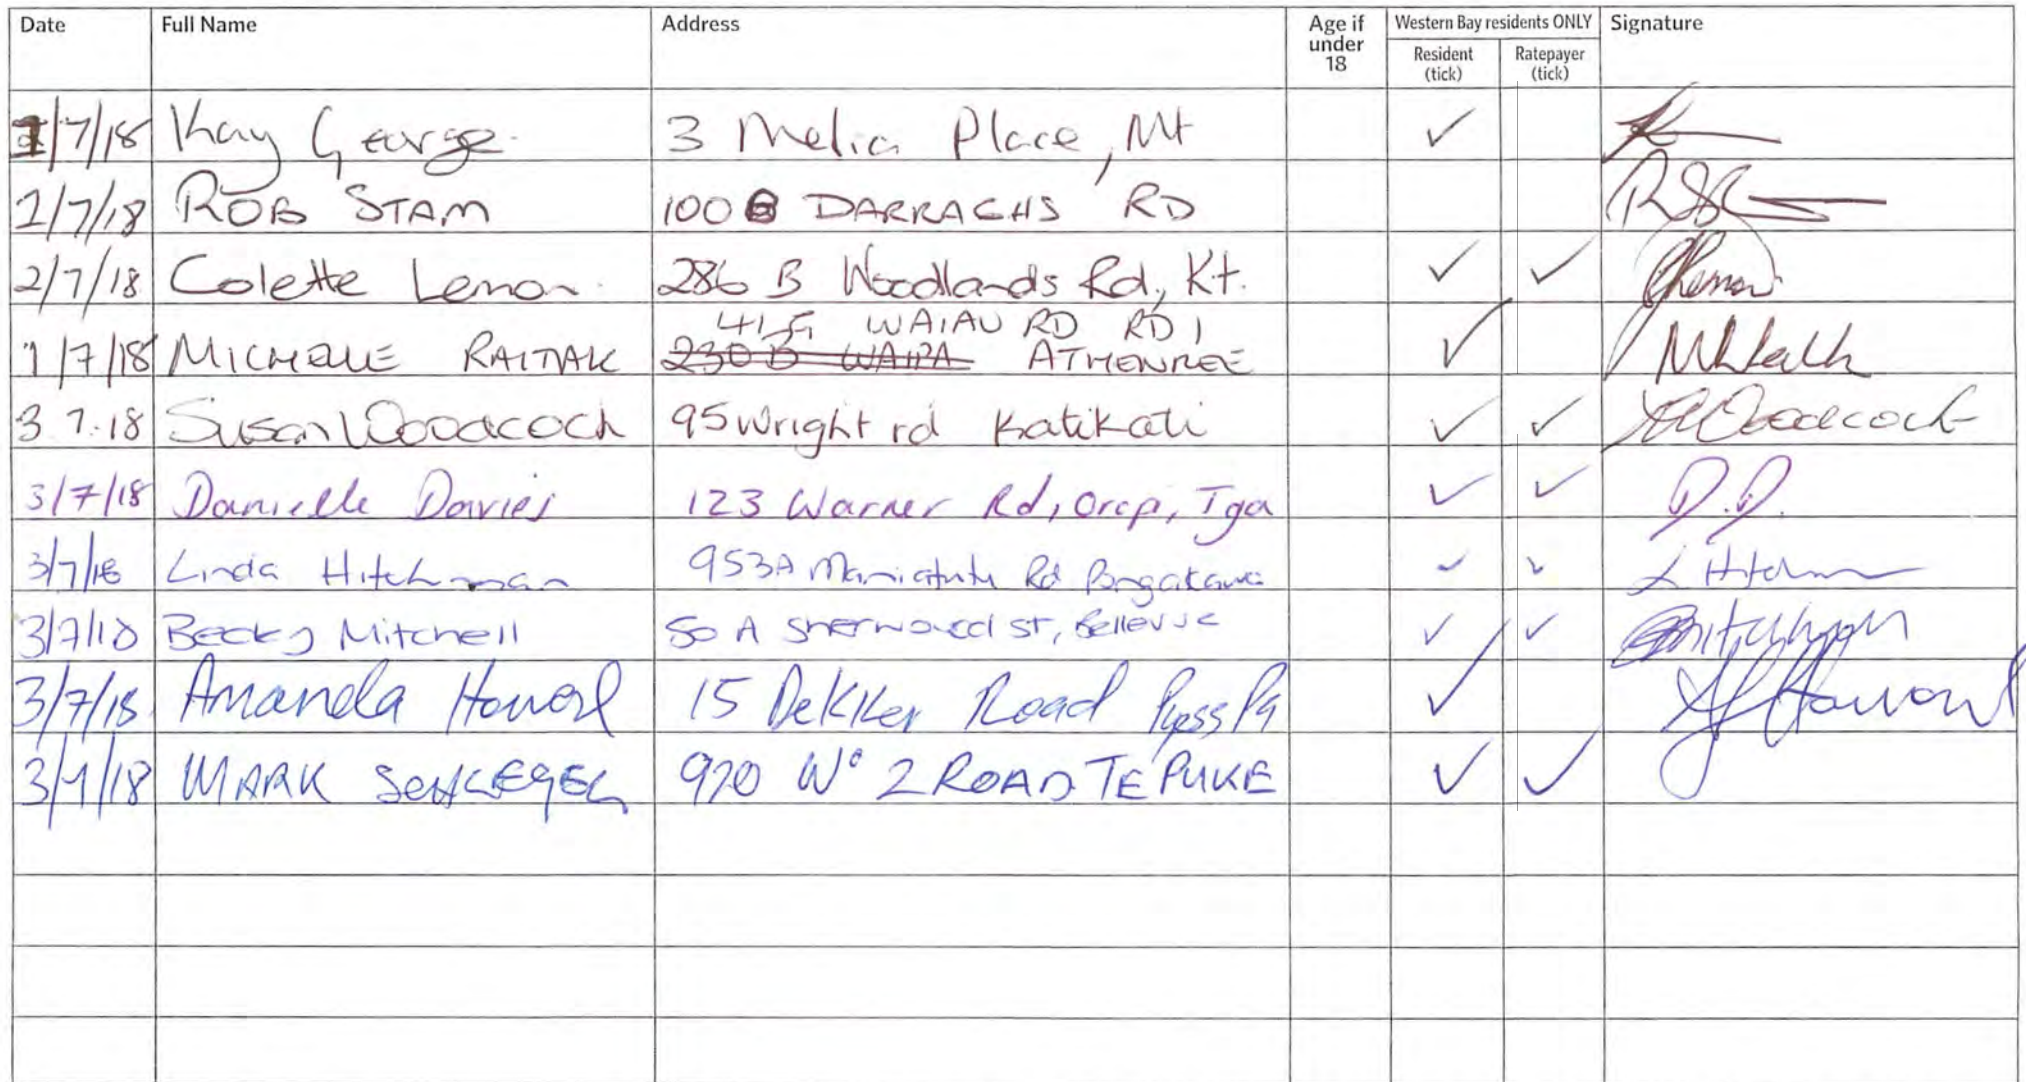 Date Full Name Address Age if under 18 Western Bay residents ONLY Resident (tick) Ratepayer (tick) Signature
1/7/18 Kay George. 3 Melia Place, Mt ✓
2/7/18 ROB STAM 100 DARRAGHS RD
2/7/18 Colette Lemon 286 B Woodlands Rd, Kt. ✓ ✓
41 G WAIAU RD RD 1
1/7/18 MICHELLE 230 B WAIPA ATHENREE ✓
3 7.18 Susan Woodcock 95 Wright rd Katikati ✓ ✓ Woodcock
3/7/18 Danielle Davies 123 Warner Rd, Orop, Tga ✓ ✓ D.D.
3/7/18 Linda Hitchman 953A Maniatutu Rd Pongakawa ✓ ✓ L Hitchman
3/7/18 Becky Mitchell 50 A Sherwood St, Bellevue ✓ ✓
3/7/18 Amanda Howard 15 Dekker Road Pyes Pa ✓
3/7/18 MARK SCHLEGEL 920 No 2 ROAD TE PUKE ✓ ✓